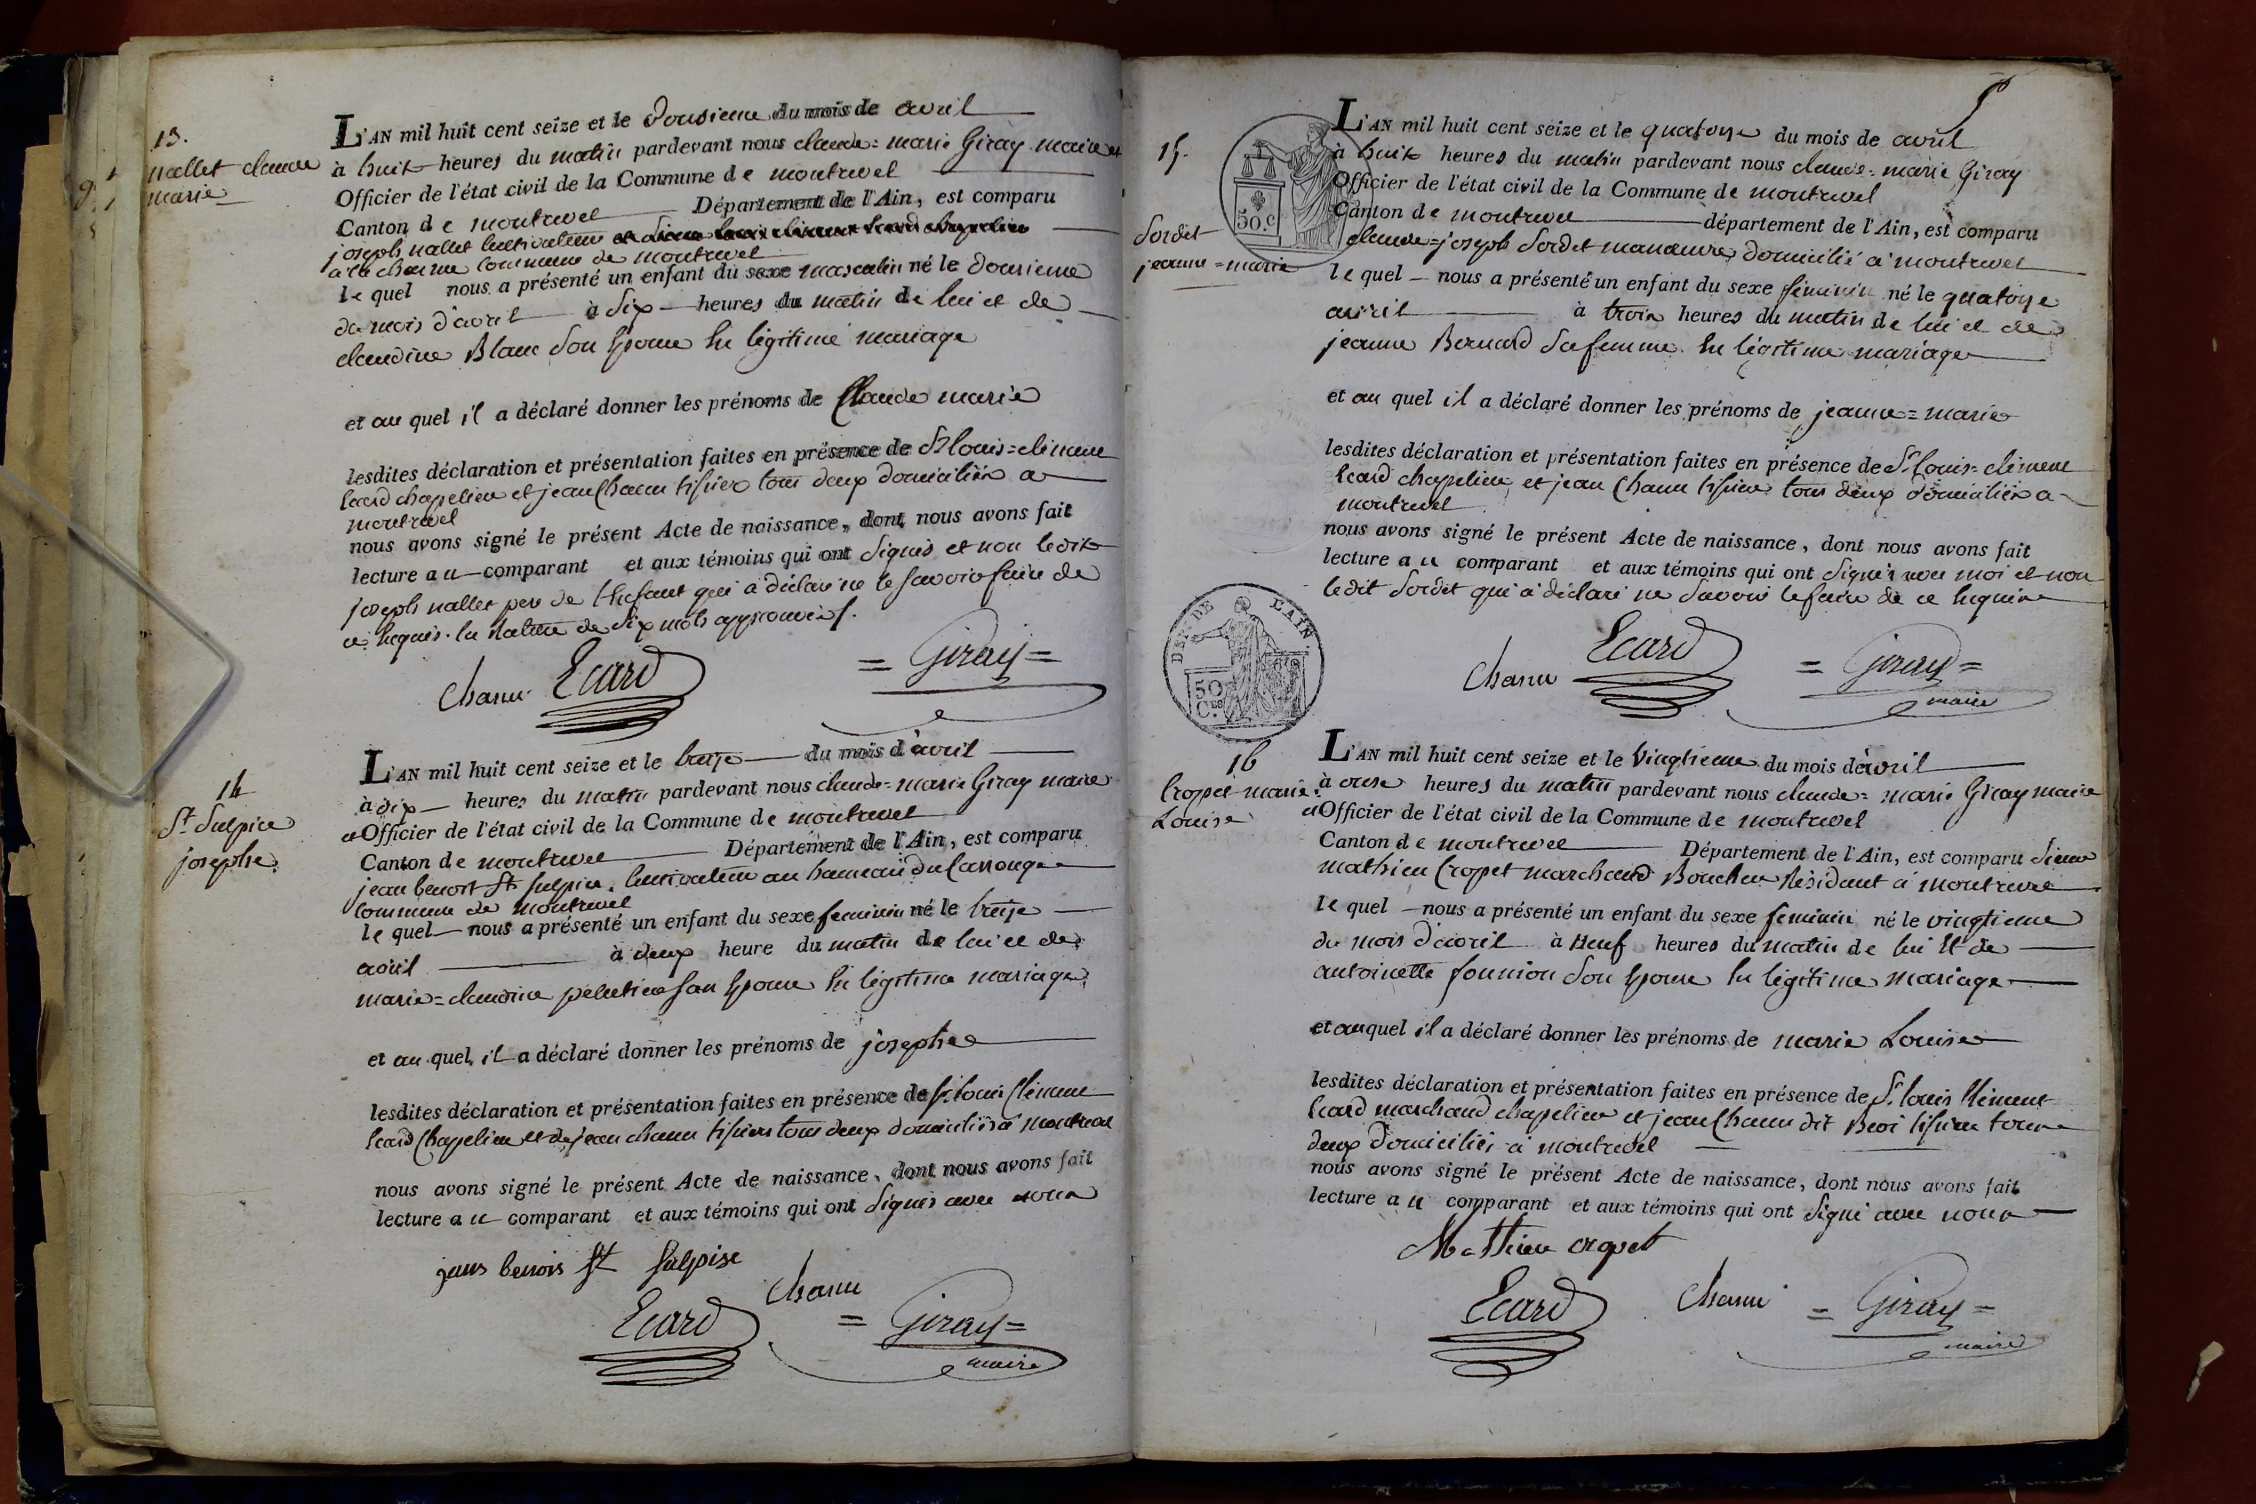 13.
nallet claude
marie
L'AN mil huit cent seize et le Dousieme du mois de avril
à huit heures du matin pardevant nous claude=marie Giray maire et
Officier de l'état civil de la Commune de montrevel
Canton de montrevel Département de l'Ain, est comparu
joseph nallet Cultivateur
à la charme commune de montrevel
le quel nous a présenté un enfant du sexe masculin né le dousieme
du mois d'avril à Six heures du matin de lui et de
claudine Blanc Son Epouse En légitime mariage
et au quel il a déclaré donner les prénoms de Claude marie
lesdites déclaration et présentation faites en présence de Sr louis=clément
Ecard chapelier et jean Chanu tisier tous deux domiciliés a
montrevel
nous avons signé le présent Acte de naissance, dont nous avons fait
lecture au comparant et aux témoins qui ont Signés et non ledit
joseph nallet pere de l'Enfant qui a déclaré ne le savoir faire de
ce Enquis. la Rature de Six mots approuvés.
Chanu Ecard = Giray =
14
St Sulpice
josephe
L'AN mil huit cent seize et le treize du mois d'avril
à dix heures du matin pardevant nous claude=marie Giray maire
et Officier de l'état civil de la Commune de montrevel
Canton de montrevel Département de l'Ain, est comparu
jean benoit St Sulpice, Cultivateur au hameau du Carrouge
commune de montrevel
le quel nous a présenté un enfant du sexe feminin né le treize
avril à deux heure du matin de lui et de
marie=claudine peletier son Epouse En légitime mariage
et au quel il a déclaré donner les prénoms de josephe
lesdites déclaration et présentation faites en présence de Sr louis Clément
Ecard Chapelier et de jean chanu tisiers tous deux domiciliés à montrevel
nous avons signé le présent Acte de naissance, dont nous avons fait
lecture au comparant et aux témoins qui ont Signés avec nous
jean benois St Sulpise
Chanu
Ecard = Giray =
maire
15.
Sordet
jeanne=marie
50.c
L'AN mil huit cent seize et le quatorze du mois de avril
à huit heures du matin pardevant nous claude=marie Giray
Officier de l'état civil de la Commune de montrevel
Canton de montrevel département de l'Ain, est comparu
claude=joseph Sordet manœuvre domicilié à montrevel
le quel nous a présenté un enfant du sexe féminin né le quatorze
avril à trois heures du matin de lui et de
jeanne Bernard Sa femme En légitime mariage
et au quel il a déclaré donner les prénoms de jeanne=marie
lesdites déclaration et présentation faites en présence de Sr Louis=clément
Ecard chapelier, et jean Chanu tisier tous deux domiciliés a
montrevel
nous avons signé le présent Acte de naissance, dont nous avons fait
lecture au comparant et aux témoins qui ont Signés avec moi et non
ledit Sordet qui à déclaré ne Savoir le faire de ce Enquis
Chanu Ecard = Giray =
maire
DEP. DE L'AIN.
50
Ces
16
Cropet marie
Louise
L'AN mil huit cent seize et le Vingtieme du mois d'avril
à onse heures du matin pardevant nous claude=marie Giray maire
et Officier de l'état civil de la Commune de montrevel
Canton de montrevel Département de l'Ain, est comparu Sieur
mathieu Cropet marchand Boucher Résidant à montrevel
le quel nous a présenté un enfant du sexe feminin né le vingtieme
du mois d'avril à neuf heures du matin de lui Et de
antoinette founion Son Epouse En légitime mariage
et auquel il a déclaré donner les prénoms de marie Louise
lesdites déclaration et présentation faites en présence de Sr louis Clément
Ecard marchand chapelier et jean Chanu dit tisier tous
deux domiciliés à montrevel
nous avons signé le présent Acte de naissance, dont nous avons fait
lecture au comparant et aux témoins qui ont Signé avec nous
Mathieu cropet
Ecard Chanu = Giray =
maire